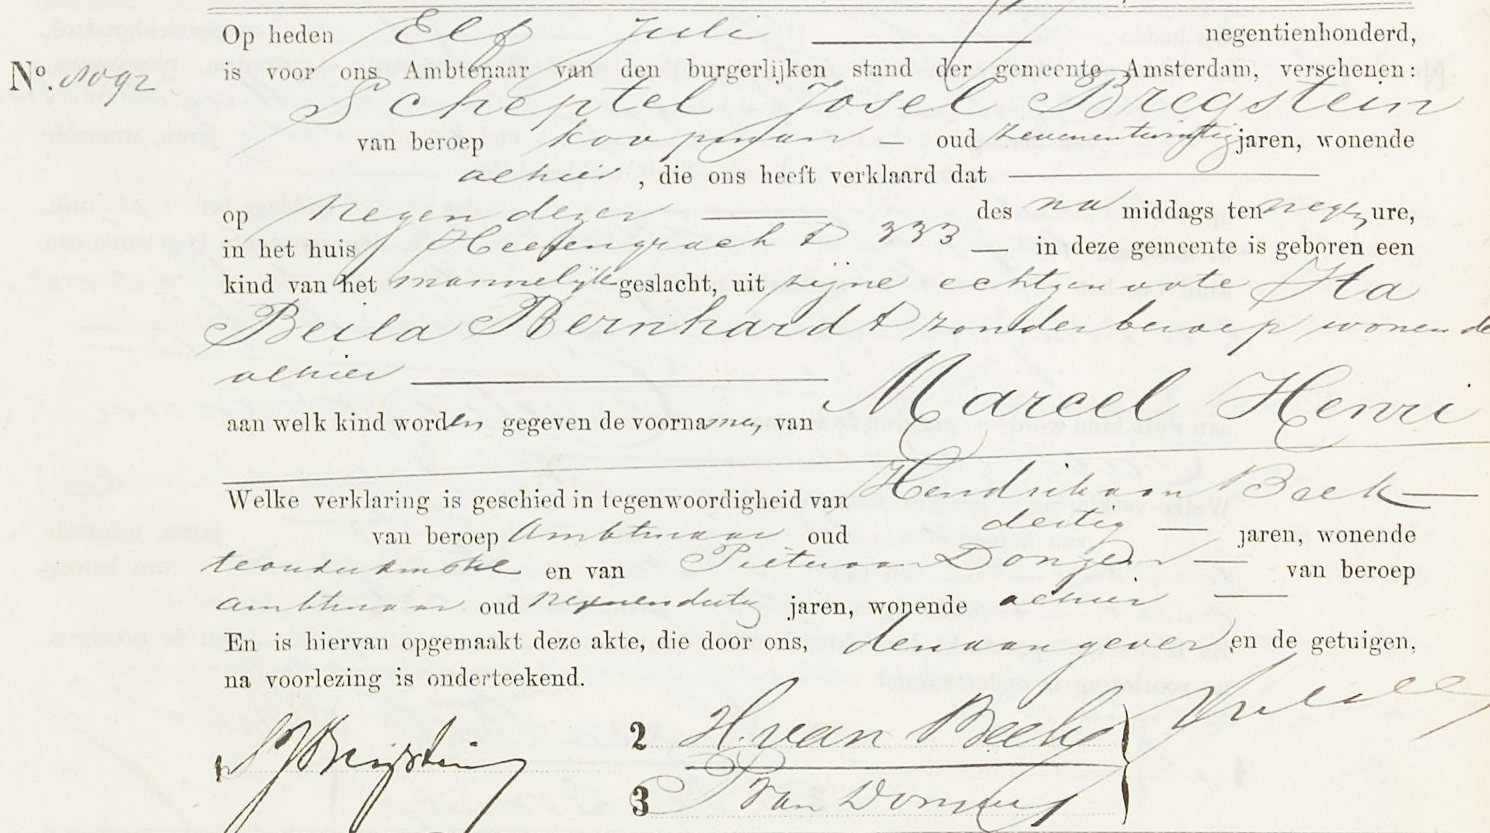 Op heden Elf Juli negentienhonderd,
No. 8092 is voor ons Ambtenaar van den burgerlijken stand der gemeente Amsterdam, verschenen:
Scheptel Josel Bregstein
van beroep koopman oud zevenentwintig jaren, wonende
alhier, die ons heeft verklaard dat
op negen dezer des na middags ten negen ure,
in het huis Heerengracht 333 in deze gemeente is geboren een
kind van het mannelijk geslacht, uit zijne echtgenoote Ita
Beila Bernhardt zonder beroep, wonende
alhier
aan welk kind worden gegeven de voornamen van Marcel Henri
Welke verklaring is geschied in tegenwoordigheid van Hendrik van Beek
van beroep Ambtenaar oud dertig jaren, wonende
en van Pieter van Dongen van beroep
ambtenaar oud negenendertig jaren, wonende alhier
En is hiervan opgemaakt deze akte, die door ons, den aangever en de getuigen,
na voorlezing is onderteekend.
SJBregstein 2 H. van Beek
3 P van Dongen